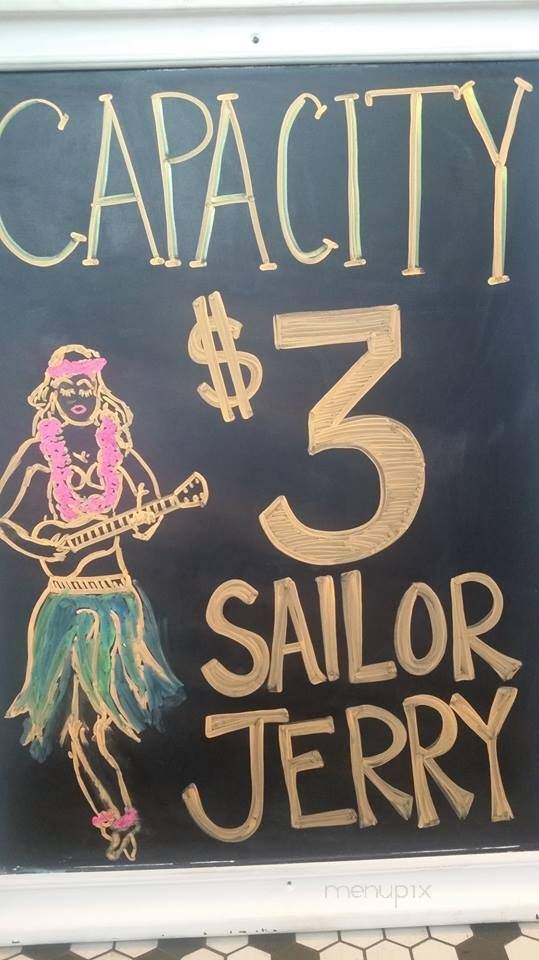 CAPACITY
$3
SAILOR
JERRY
menupix